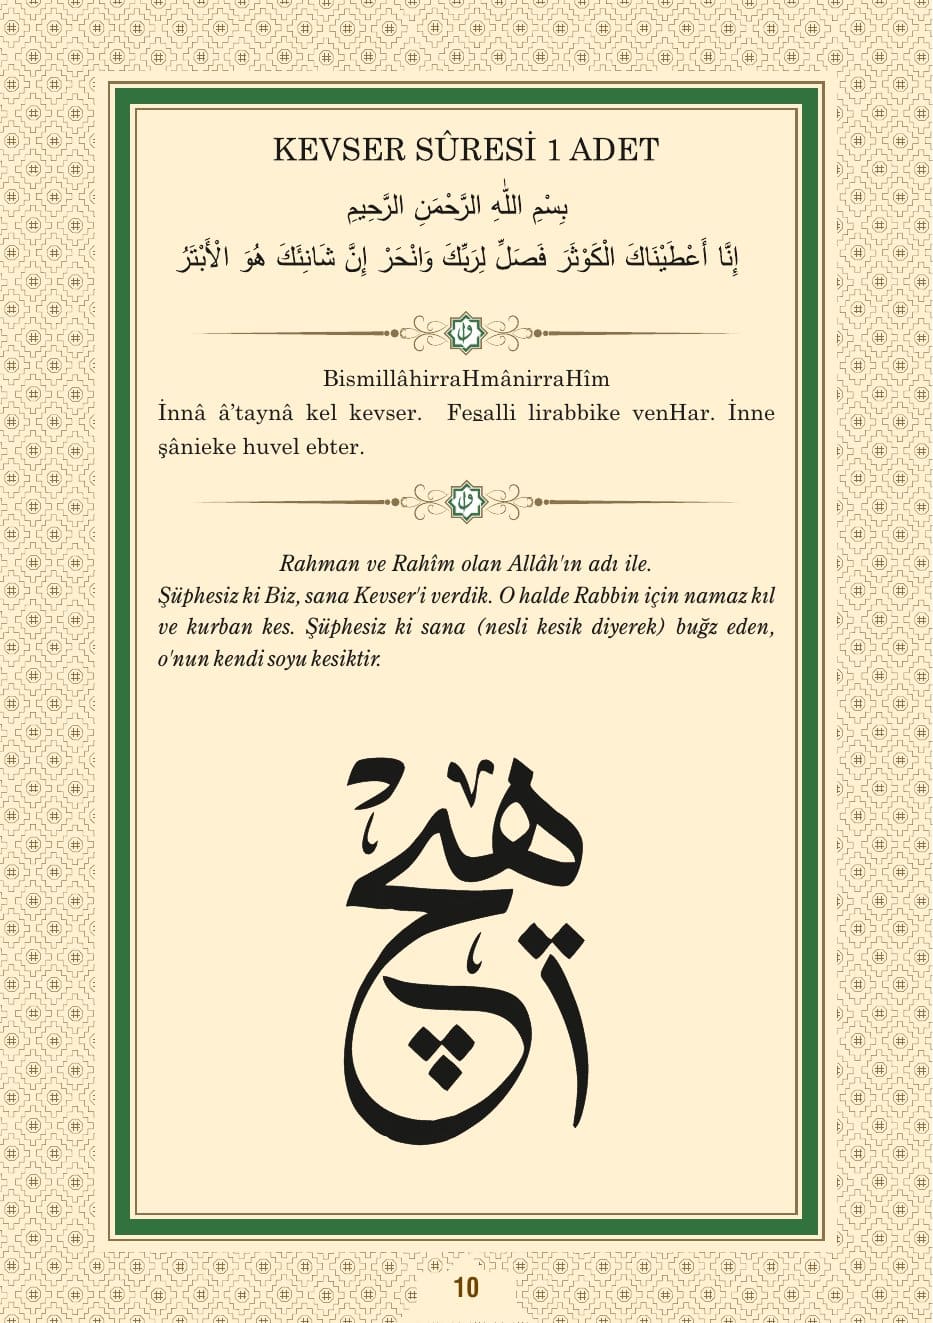 KEVSER SÛRESİ 1 ADET
بِسْمِ اللّٰهِ الرَّحْمَنِ الرَّحِيمِ
إِنَّا أَعْطَيْنَاكَ الْكَوْثَرَ فَصَلِّ لِرَبِّكَ وَانْحَرْ إِنَّ شَانِئَكَ هُوَ الْأَبْتَرُ
BismillâhirraHmânirraHîm
İnnâ â’taynâ kel kevser. Fesalli lirabbike venHar. İnne
şânieke huvel ebter.
Rahman ve Rahîm olan Allâh'ın adı ile.
Şüphesiz ki Biz, sana Kevser'i verdik. O halde Rabbin için namaz kıl
ve kurban kes. Şüphesiz ki sana (nesli kesik diyerek) buğz eden,
o'nun kendi soyu kesiktir.
هيچ
10